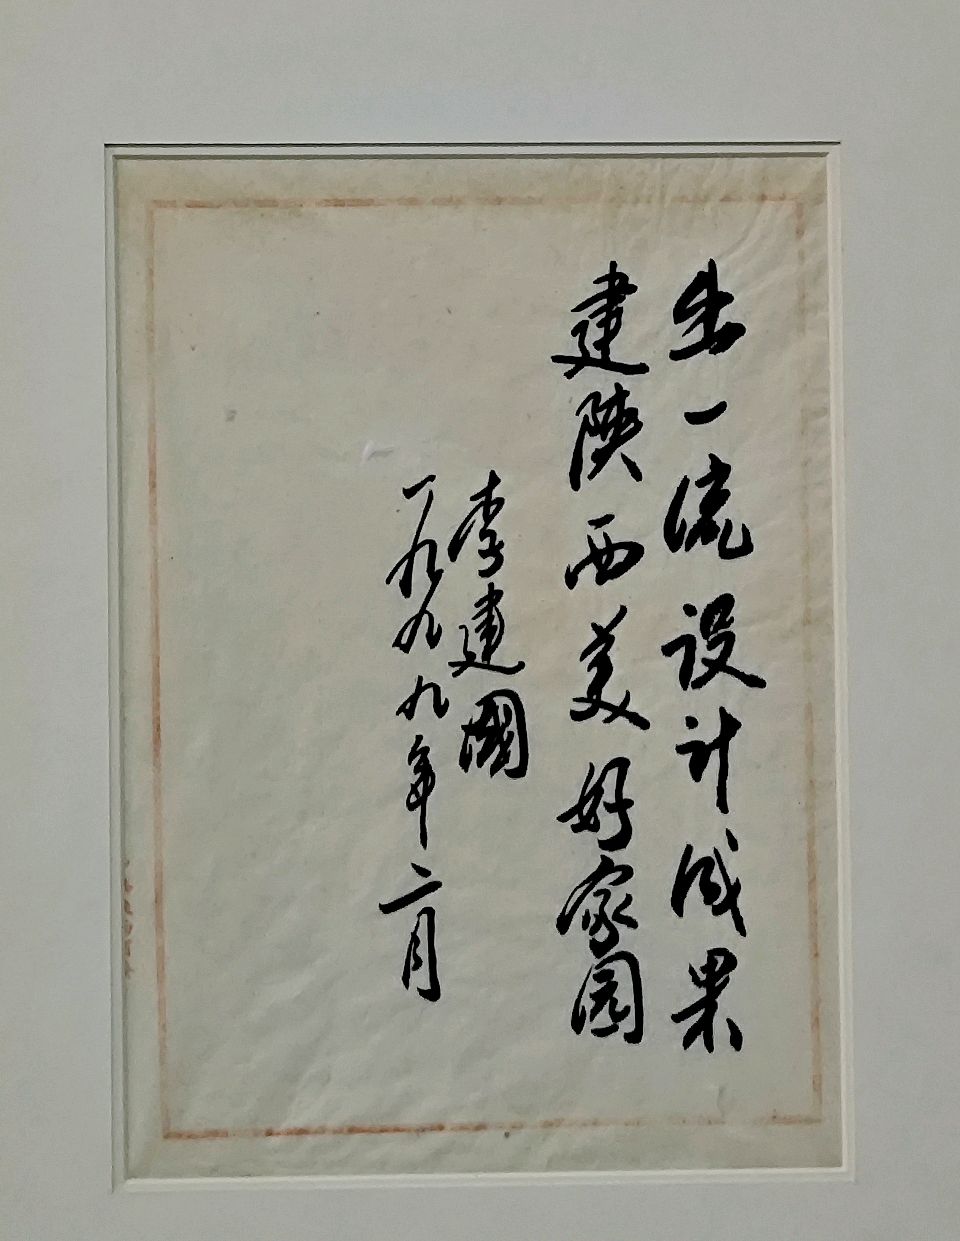 出一流设计成果
建陕西美好家园
李建國
一九九九年二月